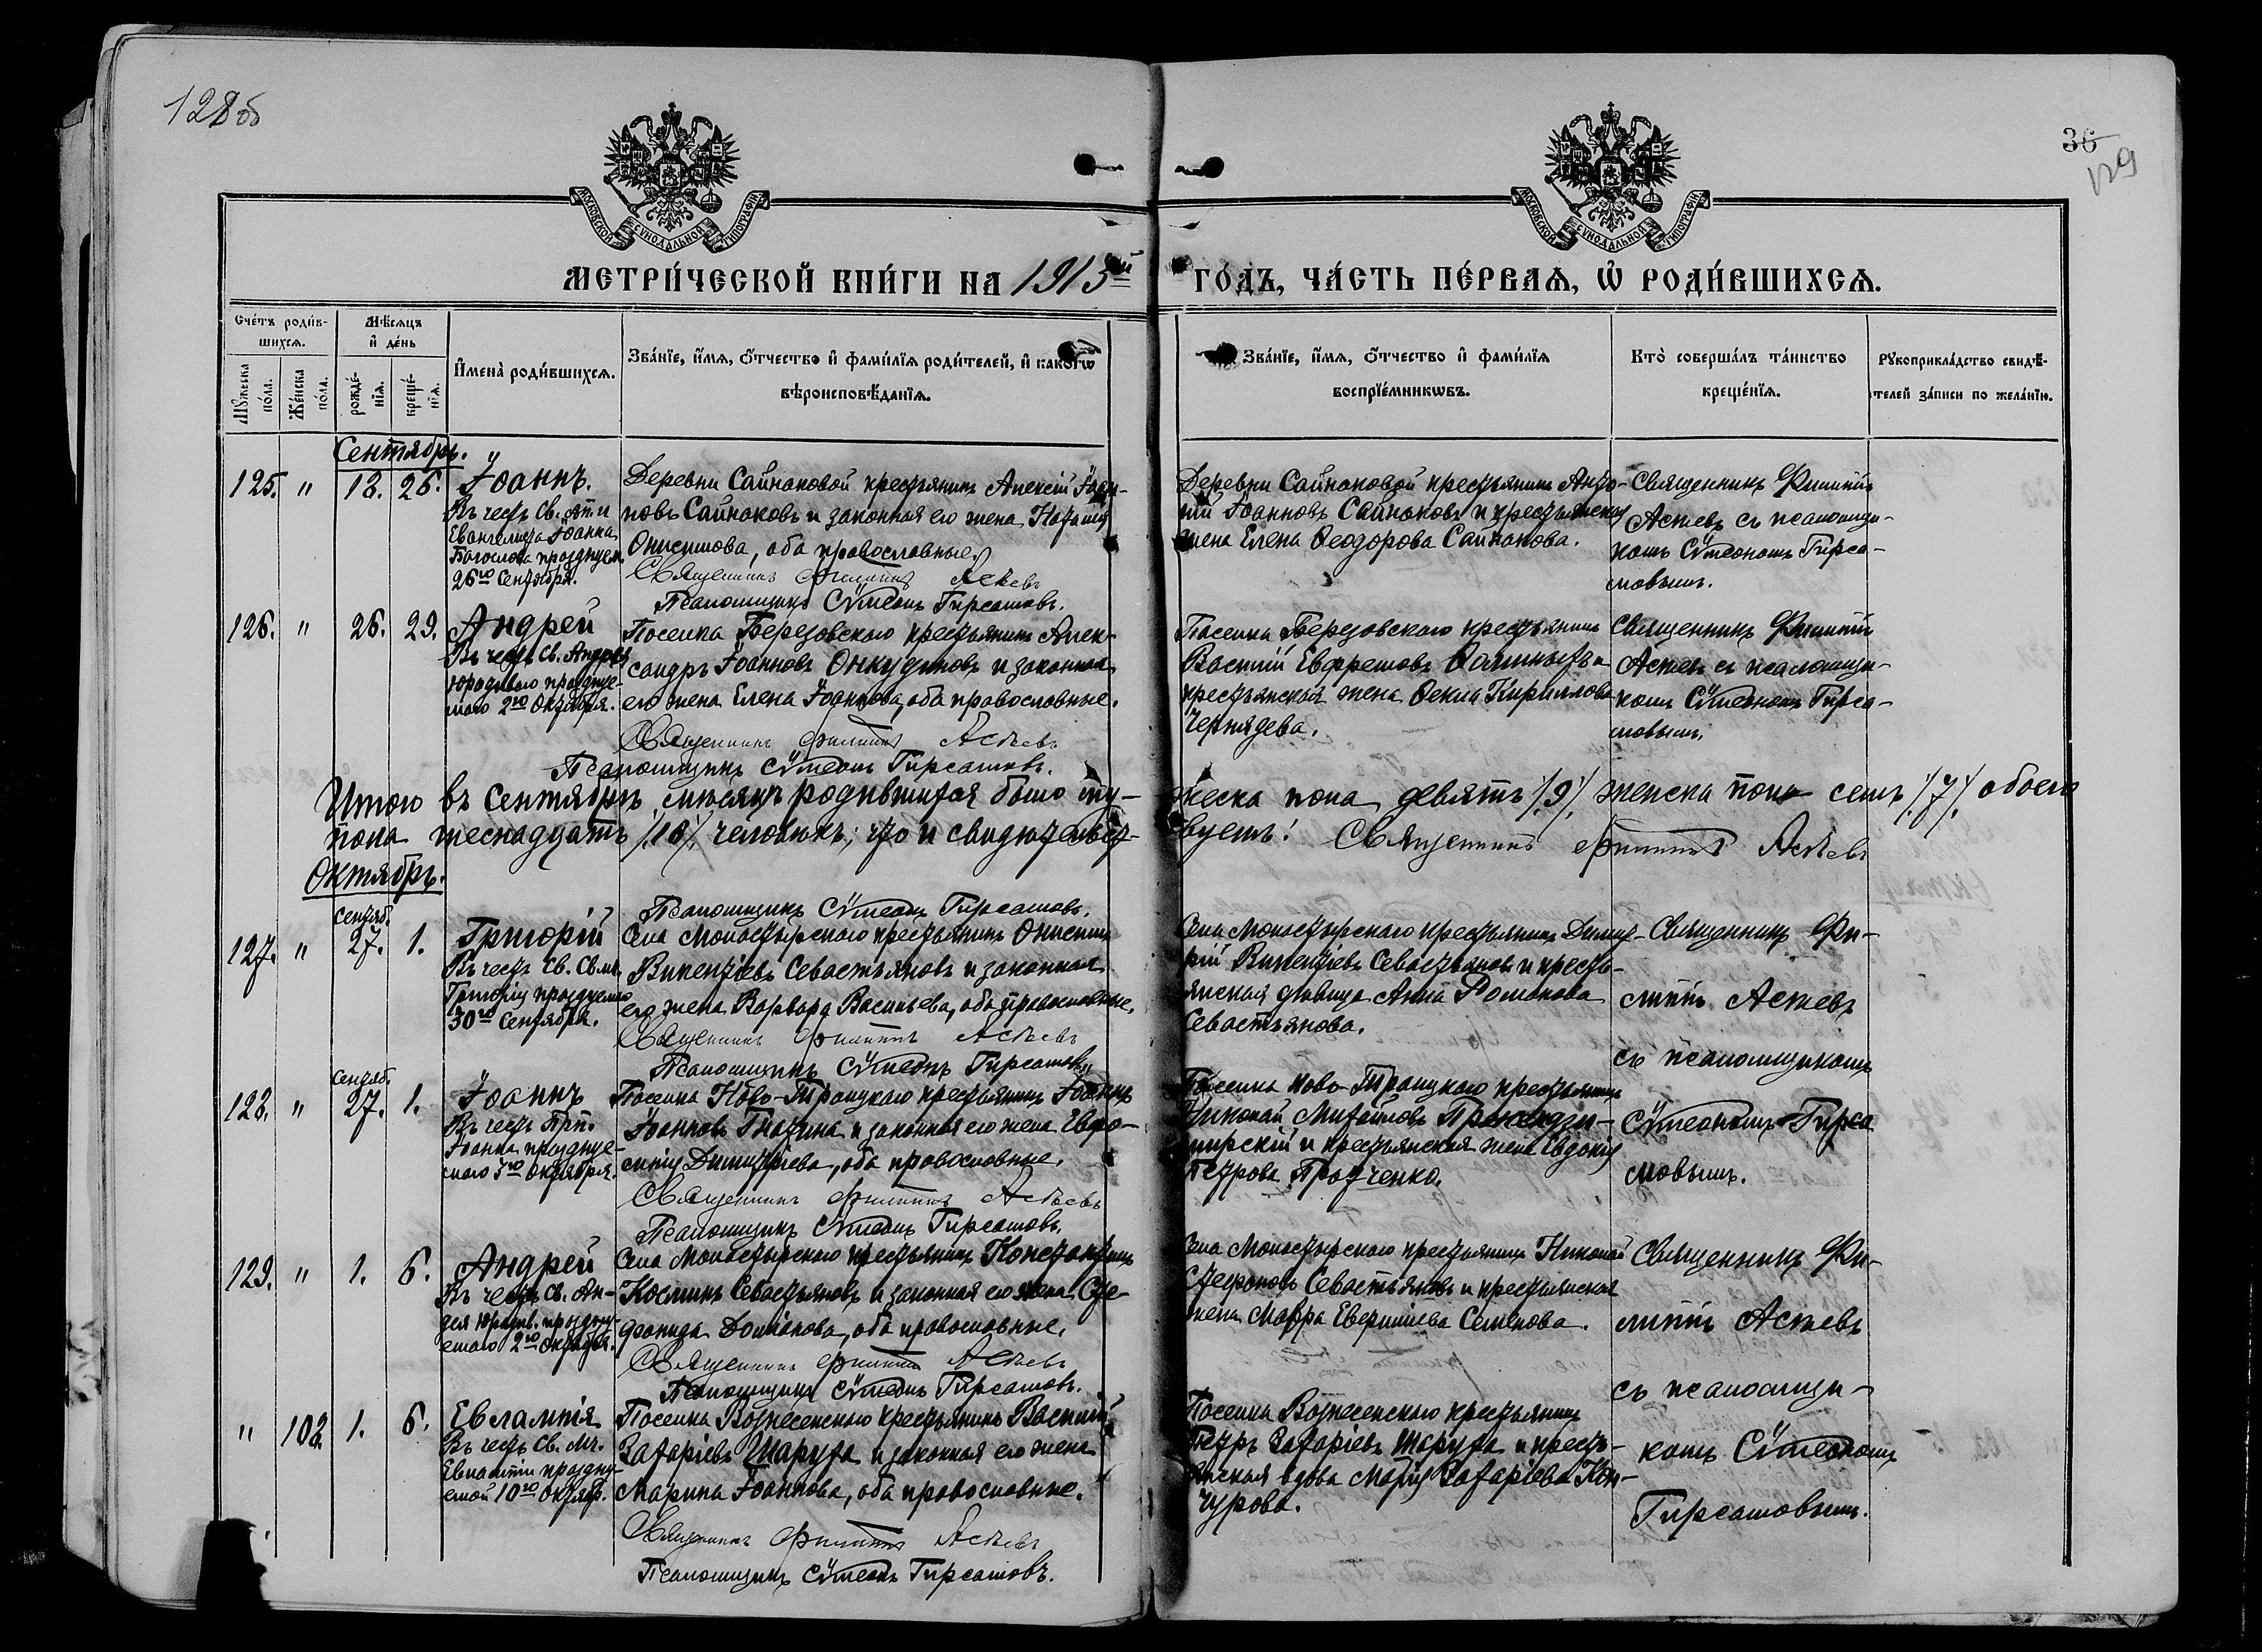 128об
36
129
МОСКОВСКОЙ СѴНОДАЛЬНОЙ ТИПОГРАФІИ
МОСКОВСКОЙ СѴНОДАЛЬНОЙ ТИПОГРАФІИ
МЕТРИ́ЧЕСКОЙ КНИ́ГИ НА 1915й ГО́ДЪ, ЧА́СТЬ ПЕ́РВАѦ, Ѡ҆ РОДИ́ВШИХСѦ.
Сче́тъ роди́в-
шихсѧ.
Мѣ́сѧцъ
и҆ де́нь
Мꙋ́жеска
по́ла.
Же́нска
по́ла.
рожде́-
нїѧ.
креще́-
нїѧ.
И҆мена̀ роди́вшихсѧ.
Зва́нїе, и҆́мѧ, ѻ҆́тчество и҆ фами́лїѧ роди́телей, и҆ како́гѡ
вѣроисповѣ́данїѧ.
Зва́нїе, и҆́мѧ, ѻ҆́тчество и҆ фами́лїѧ
воспрїе́мникѡвъ.
Кто̀ соверша́лъ та́инство
креще́нїѧ.
Рꙋкоприкла́дство свидѣ́-
телей за́писи по жела́нїю.
Сентябрь.
125. " 18. 26. Іоаннъ.
Въ честь Св. Ап. и
Евангелиста Іоанна
Богослова празднуем.
26го Сентября.
Деревни Сайнаковой крестьянинъ Алексій Іоан-
новъ Сайнаковъ и законная его жена Наталія
Онисимова, оба православные.
Священникъ Филиппъ Астевъ
Псаломщикъ Сѵмеонъ Гирсамовъ.
Деревни Сайнаковой крестьянинъ Анто-
ній Іоанновъ Сайнаковъ и крестьянская
жена Елена Ѳеодорова Сайнакова.
Священникъ Филиппъ
Астевъ съ псаломщи-
комъ Сѵмеономъ Гирса-
мовымъ.
126. " 26. 29. Андрей
Въ честь Св. Андрея
Юродиваго праздную-
маго 2го Октября.
Поселка Березовскаго крестьянинъ Алек-
сандръ Іоанновъ Онкудиновъ и законная
его жена Елена Іоаннова, оба православные.
Священникъ Филиппъ Астевъ
Псаломщикъ Сѵмеонъ Гирсамовъ.
Поселка Березовскаго крестьянинъ
Василій Евфремовъ
крестьянская жена Ѳекла Кириллова
Чернядева.
Священникъ Филиппъ
Астевъ съ псаломщи-
комъ Сѵмеономъ Гирса-
мовымъ.
Итого въ Сентябрѣ мѣсяцѣ родившихся было му-
жеска пола девять /9/ женска пола семь /7/ обоего
пола шеснадцать /16/ человѣкъ; что и свидѣтельст-
вуемъ: Священникъ Филиппъ Астевъ
Псаломщикъ Сѵмеонъ Гирсамовъ.
Октябрь.
сентяб.
127. " 27. 1. Григорій
Въ честь Св. Свмч.
Григорія празднуемаго
30го Сентября.
Села Монастырскаго крестьянинъ Онисимъ
Викентіевъ Севастьяновъ и законная
его жена Варвара Васильева, оба православные.
Священникъ Филиппъ Астевъ
Псаломщикъ Сѵмеонъ Гирсамовъ.
Села Монастырскаго крестьянинъ Димит-
рій Викентіевъ Севастьяновъ и кресть-
янская дѣвица Анна Романова
Севастьянова.
Священникъ Фи-
липпъ Астевъ
съ псаломщикомъ
Сѵмеономъ Гирса
мовымъ.
сентяб.
128. " 27. 1. Іоаннъ
Въ честь Прп.
Іоанна праздную-
маго 3го Октября.
Поселка Ново-Троицкаго крестьянинъ Іоаннъ
Іоанновъ и законная его жена Евфро-
синія Димитріева, оба православные.
Священникъ Филиппъ Астевъ
Псаломщикъ Сѵмеонъ Гирсамовъ.
Поселка Ново-Троицкаго крестьянинъ
Николай Михайловъ
и крестьянская жена Евдокія
Петрова Проценко.
129. " 1. 6. Андрей
Въ честь Св. Ан-
дрея Юродив. праздну-
емаго 2го Октября.
Села Монастырскаго крестьянинъ Константинъ
Косминъ Севастьяновъ и законная его жена Сте-
фанида Доміанова, оба православные.
Священникъ Филиппъ Астевъ
Псаломщикъ Сѵмеонъ Гирсамовъ.
Села Монастырскаго крестьянинъ Николай
Стефановъ Севастьяновъ и крестьянская
жена Мавра Семенова.
Священникъ Фи-
липпъ Астевъ
съ псаломщи-
комъ Сѵмеономъ
Гирсамовымъ.
" 102. 1. 6. Евлампія
Въ честь Св. Мч.
Евлампіи праздну-
емой 10го Октяб.
Поселка Вознесенскаго крестьянинъ Василій
Захаріевъ Шаруха и законная его жена
Марина Іоаннова, оба православные.
Священникъ Филиппъ Астевъ
Псаломщикъ Сѵмеонъ Гирсамовъ.
Поселка Вознесенскаго крестьянинъ
Петръ Захаріевъ Шаруха и кресть-
янская вдова Марія Захаріева Кон-
чурова.